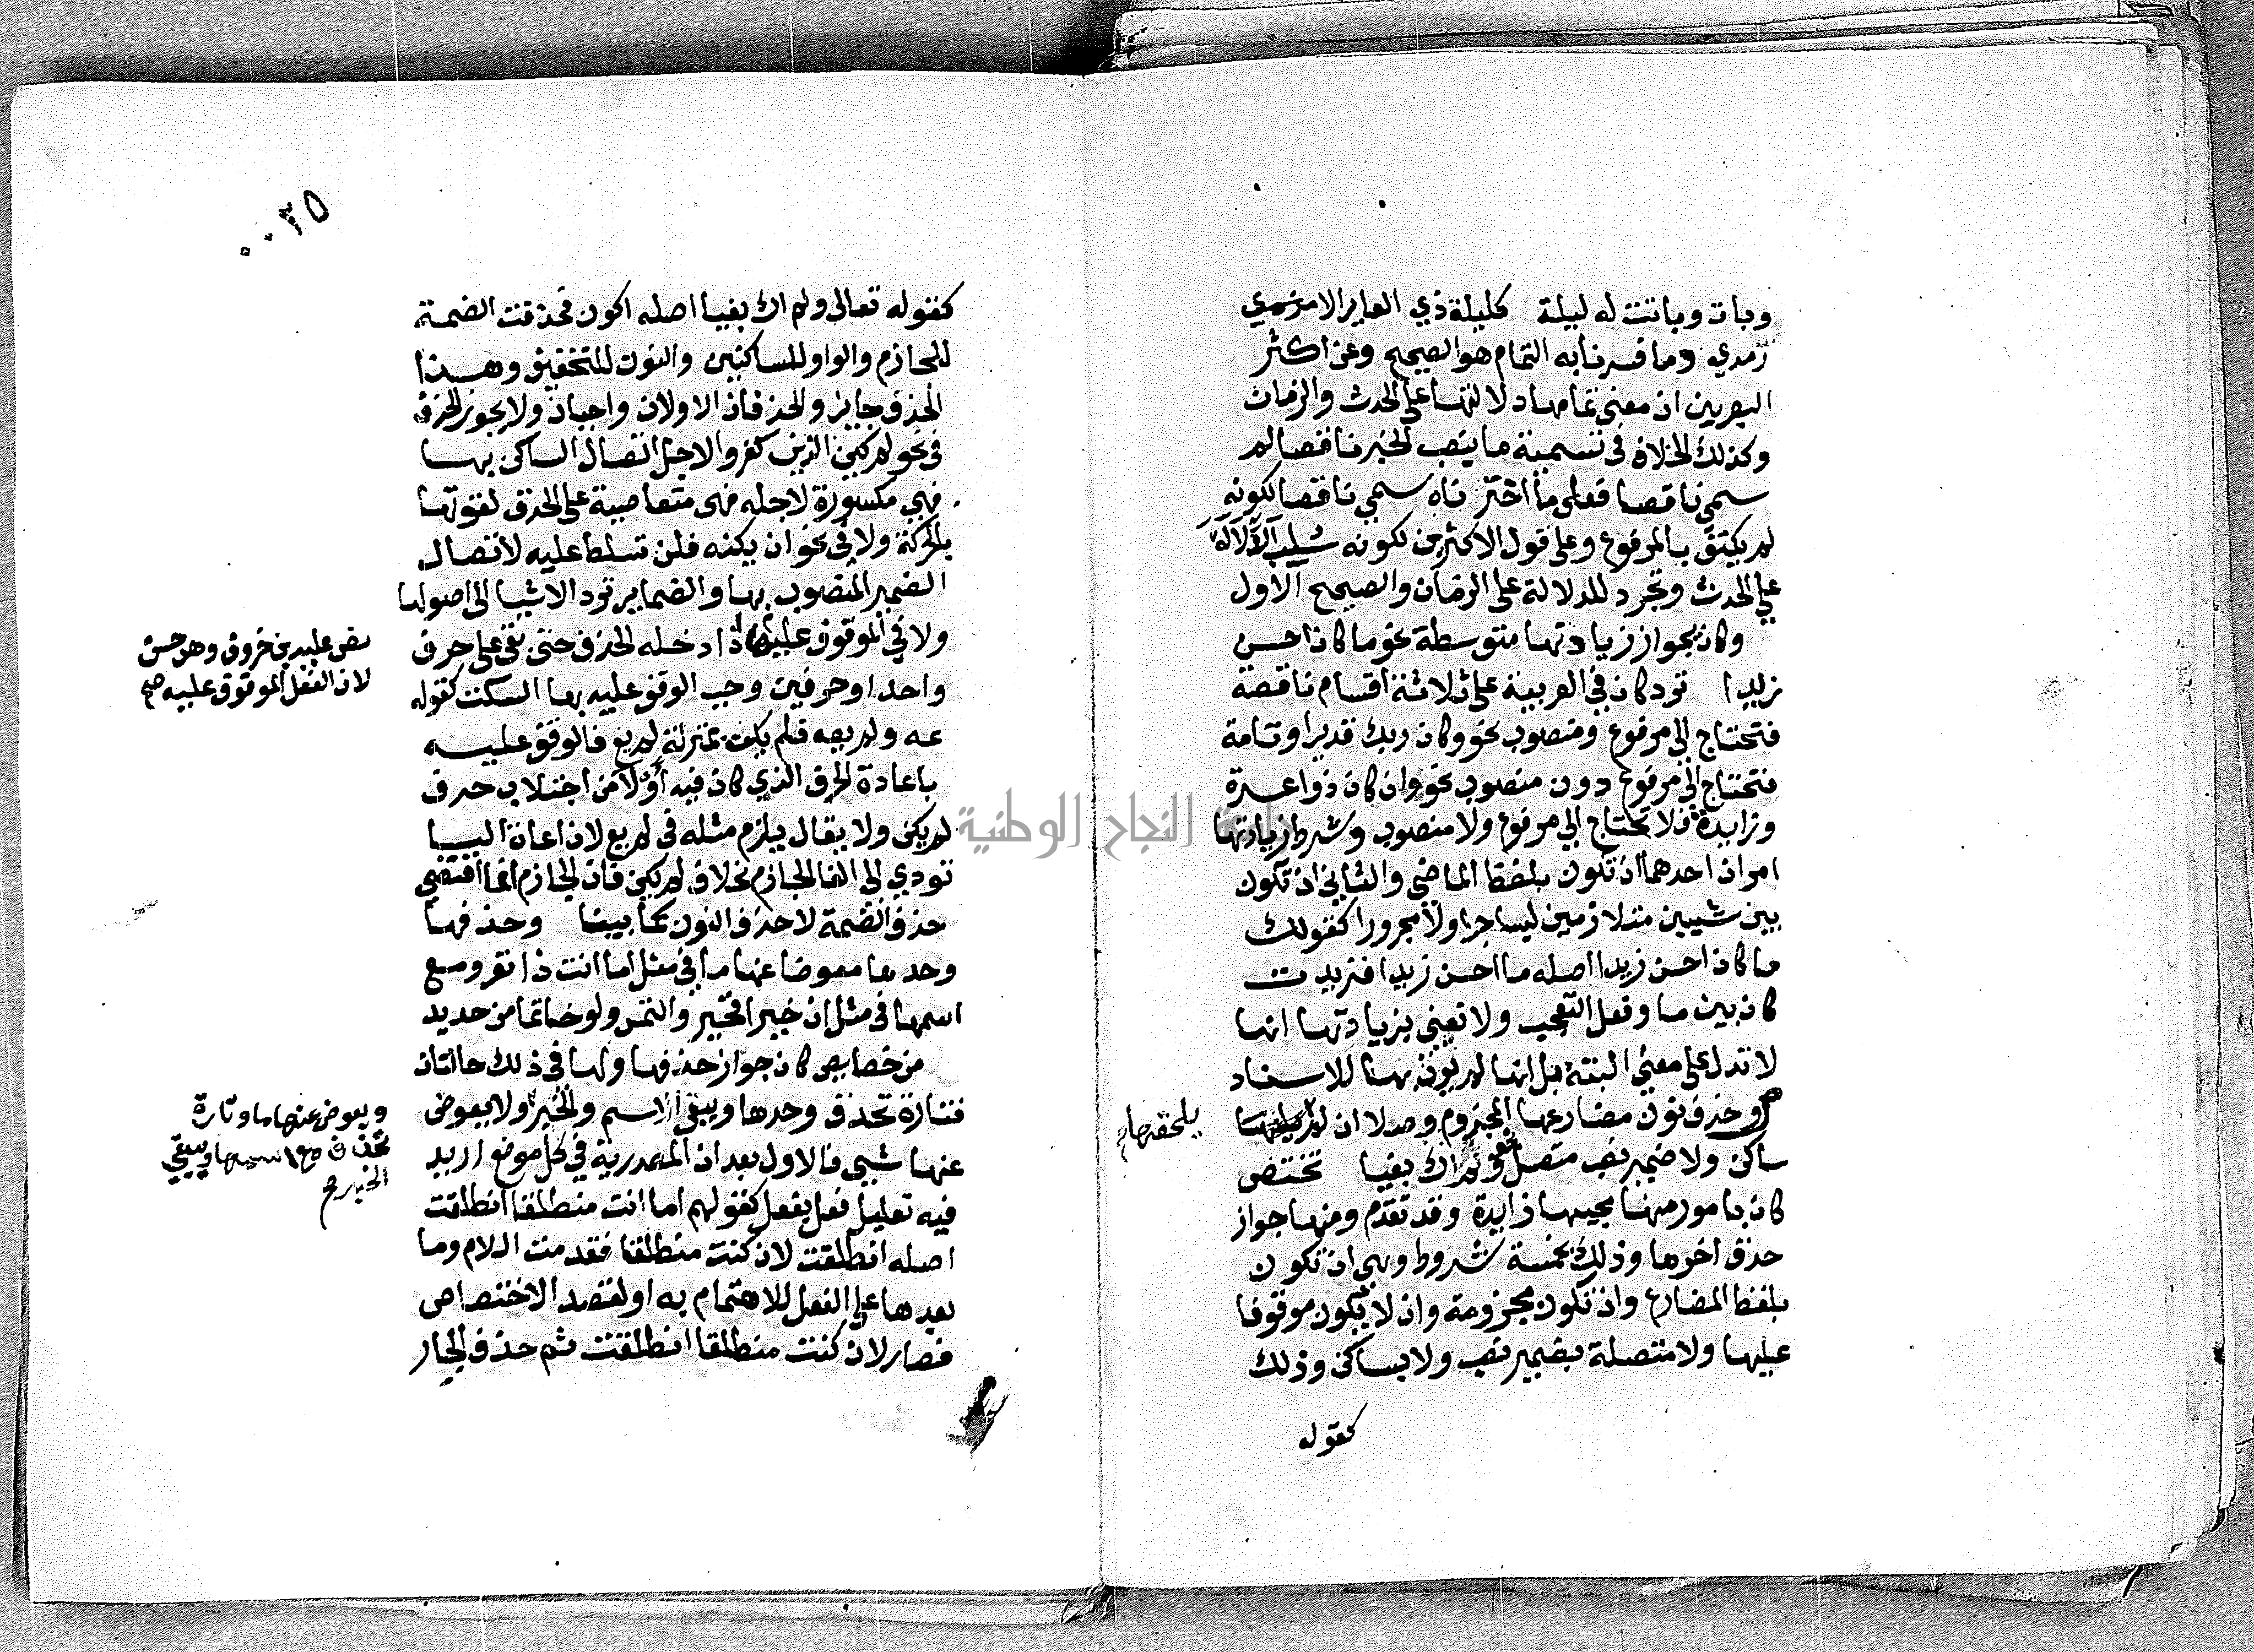 وبات وباتت له ليلة كليلة ذي العاير الارمد
رمدي وما فسرنا به التمام هو الصحيح وعن اكثر
البصريين ان معنى تمامها دلالتها على الحدث والزمان
وكذلك الخلاف في تسمية ما ينصب الخبر ناقصا لم
سمي ناقصا فعلى ما اخترناه سمي ناقصا لكونه
لم يكتف بالمرفوع وعلى قول الاكثرين لكونه سلب الدلالة
على الحدث وتجرد للدلالة على الزمان والصحيح الاول
وكان بجواز زيادتها متوسطة نحو ما كان احسن
زيدا ترد كان في العربية على ثلاثة اقسام ناقصة
فتحتاج الى مرفوع ومنصوب نحو وكان ربك قديرا وتامة
فتحتاج الى مرفوع دون منصوب نحو وان كان ذو عسرة
وزايدة فلا تحتاج الى مرفوع ولا منصوب وشرط زيادتها
امران احدهما ان تكون بلفظ الماضي والثاني ان تكون
بين شيين متلازمين ليسا جارا ولا مجرورا كقولك
ما كان احسن زيدا اصله ما احسن زيدا فزيدت
كان بين ما وفعل التعجب ولا نعني بزيادتها انها
لا تدل على معنى البتة بل انها لم يوت بها للاسناد
ص وحذف نون مضارعها المجزوم وصلا ان لم يلقها
يلحقها
ساكن ولا ضمير نصب متصل نحو ولم اك بغيا تختص
كان بامور منها مجيها زايدة وقد تقدم ومنها جواز
حذف اخرها وذلك بخمسة شروط وهي ان تكون
بلفظ المضارع وان تكون مجزومة وان لا تكون موقوفا
عليها ولا متصلة بضمير نصب ولا بساكن وذلك
كقوله
٠٠٢٥
كقوله تعالى ولم اك بغيا اصله اكون فحذفت الضمة
للجازم والواو للساكنين والنون للتخفيف وهذا
الحذف جايز والحذفان الاولان واجبان ولا يجوز الحذف
في نحو لم يكن الذين كفروا لاجل اتصال الساكن بها
فهي مكسورة لاجله فهي متعاصية على الحذف لقوتها
بالحركة ولا في نحو ان يكنه فلن تسلط عليه لاتصال
الضمير المنصوب بها والضماير ترد الاشيا الى اصولها
ولا في الموقوف عليها اذا دخله الحذف حتى بقي على حرف
نص عليه بن خروف وهو حسن
لان الفعل الموقوف عليه صح
واحد او حرفين وجب الوقف عليه بها السكت كقوله
عه ولم يعه فلم يكن بمنزلة لم يع فالوقف عليه
باعادة الحرف الذي كان فيه اولا من اجتلاب حرف
لم يكن ولا يقال يلزم مثله في لم يع لان اعادة اليا
تودي الى الغا الجازم بخلاف لم يكن فان الجازم انما اقتضى
حذف الضمة لا حذف النون كما بينا وحذفها
وحدها معوضا عنها ما في مثل اما انت ذا نفر ومع
اسمها في مثل ان خيرا فخير والتمس ولو خاتما من حديد
من خصايص كان جواز حذفها ولها في ذلك حالتان
فتارة تحذف وحدها ويبقى الاسم والخبر ولا يعوض
ويعوض عنها ما وتارة
تحذف مع اسمها ويبقى
الخبر صح
عنها شيى فالاول بعد ان المصدرية في كل موضع اريد
فيه تعليل فعل بفعل كقولهم اما انت منطلقا انطلقت
اصله انطلقت لان كنت منطلقا فقدمت اللام وما
بعدها على الفعل للاهتمام به او لقصد الاختصاص
فصار لان كنت منطلقا انطلقت ثم حذف الجار
جامعة النجاح الوطنية